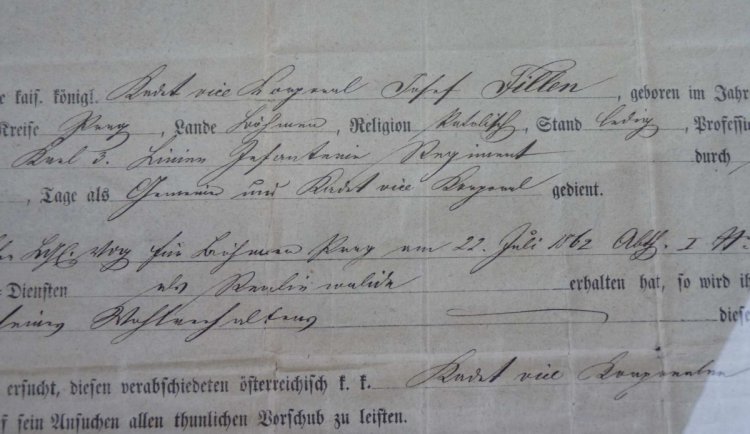 kais. königl. Kadet vice Korporal Josef Tillen, geboren im Jahr
Kreise Prag, Lande Böhmen, Religion Katolisch, Stand ledig, Professi
Karl 3. Linien Infanterie Regiment durch
, Tage als Gemeiner und Kadet vice Korporal gedient.
für Böhmen Prag am 22. Juli 1862 Abth. I
-Diensten als Realinvalide erhalten hat, so wird ih
seines Wohlverhaltens diese
ersucht, diesen verabschiedeten österreichisch k. k. Kadet vice Korporalen
f sein Ansuchen allen thunlichen Vorschub zu leisten.